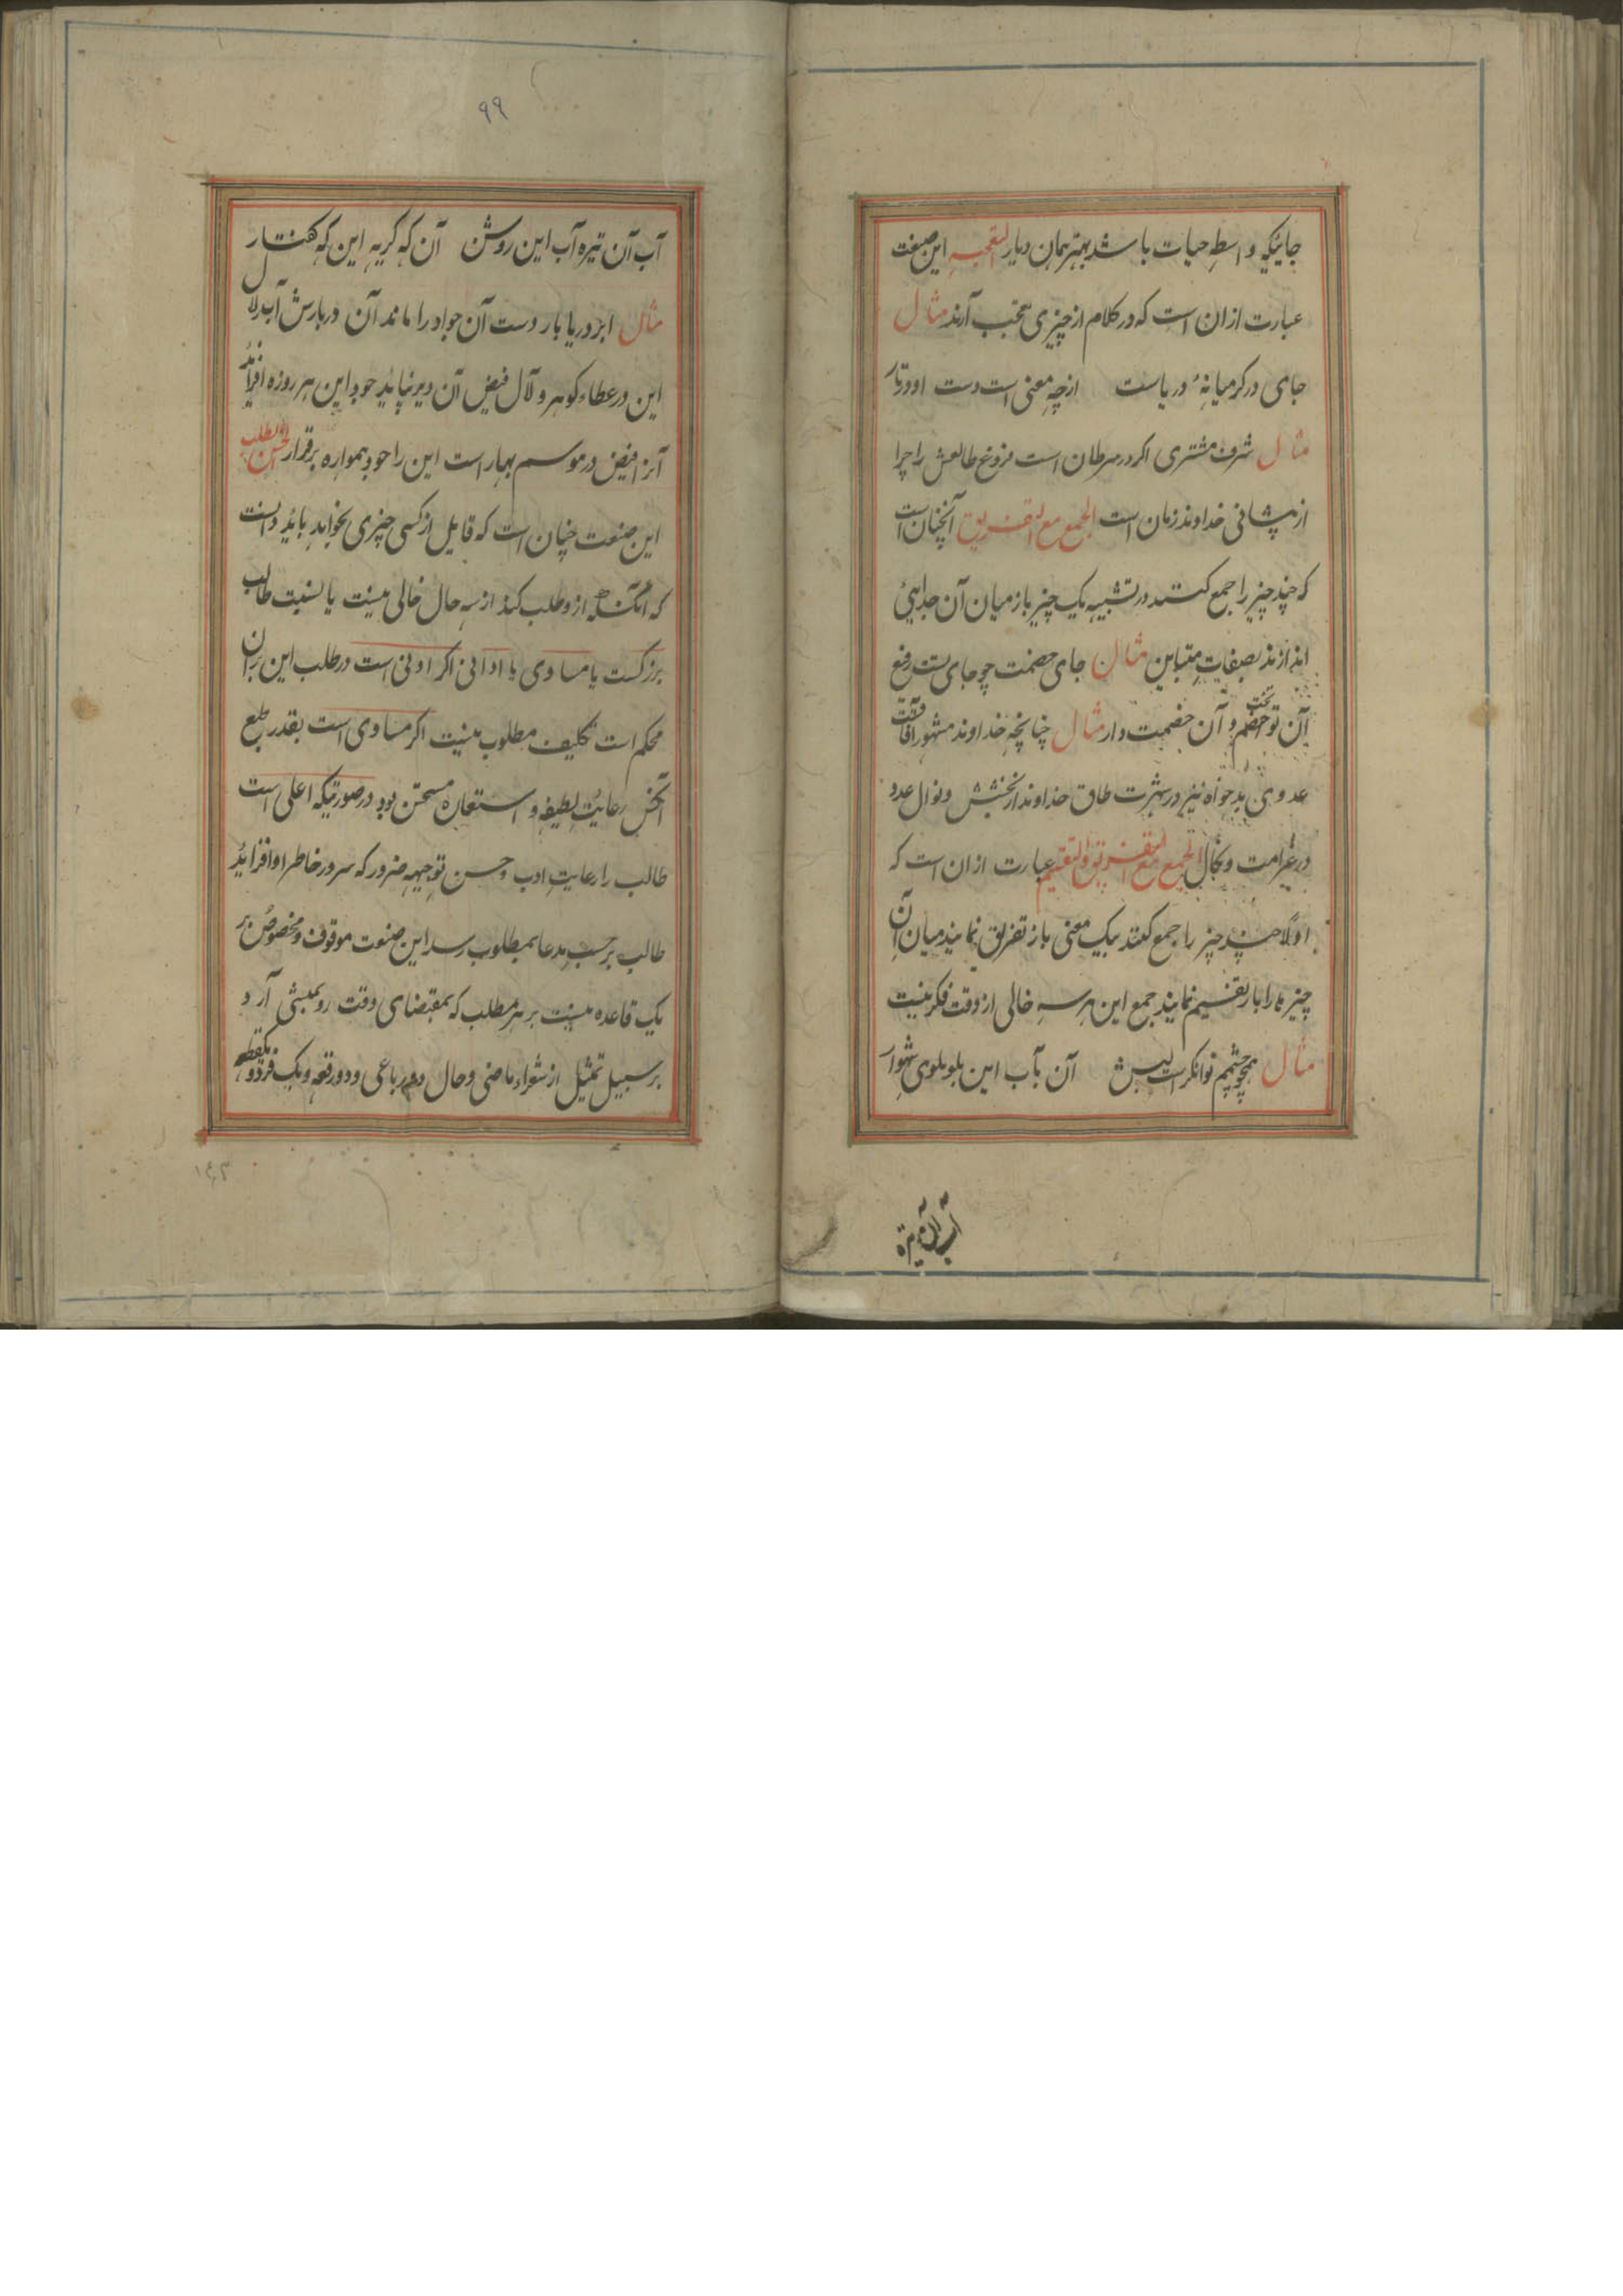 جائیکه واسطه حیات باشد بهتر همان دیار التعجبه این صنعت
عبارت از ان است که در کلام از چیزی تعجب آرند مثال
جای در کر میانهٔ دریاست از چه معنی است دست او در بار
مثال شرف مشتری اکر در سرطان است فروغ طالعش را چرا
از پیشانی خداوند زمان است الجمع مع التفریق آنچنان است
که چند چیز را جمع کنند در تشبیه یک چیز باز میان آن جدایئی
اندازند بصفات متباین مثال جای خصمت چو جای تست رفیع
آن تو تخت و آن خصمت دار مثال چنانچه خداوند مشهور آفاقست
عدوی بد خواه نیز در شهرت طاق خداوند از بخشش و نوال عدو
در غرامت و نکال الجمع مع التفریق والتقسیم عبارت از ان است که
اولاً چند چیز را جمع کنند بیک معنی باز تفریق نمایند میان آن
چیز ها را باز تقسیم نمایند جمع این هر سه خالی از دقت فکر نیست
مثال همچو چشمم توانکر است لبش آن بآب این بلولوی شهوار
آب آن تیره
۹۹
آب آن تیره آب این روشن آن که کریه این که کفتار
مثال ابر دریا بار دست آن جواد را ماند آن در بارش آب زلال
این در عطاء کوهر و لآل فیض آن دیر نپاید جود این هر روزه افزاید
آنرا فیض در موسم بهار است این را جود همواره برقرار حسن الطلب
این صنعت چنان است که قایل از کسی چیزی بخواهد باید دانست
که آنکسکه ازو طلب کند از سه حال خالی نیست یا نسبت طالب
بزرکست یا مساوی یا ادانی اکر ادنی است در طلب این بران
محکم است تکلیف مطلوب نیست اکر مساوی است بقدر طبع
آنکس رعایت لطیفه و استعاره مستحسن بود در صورتیکه اعلی است
طالب را رعایت ادب و حسن توجیهه ضرور که سرور خاطر او افزاید
طالب برحسب مدعا بمطلوب رسد این صنعت موقوف و مخصوص بر
یک قاعده نیست بر هر مطلب که بمقتضای وقت رو بمیشی آرد
بر سبیل تمثیل از شعراء ماضی و حال دو رباعی و دو رقعه و یک فرد و یکقطعه